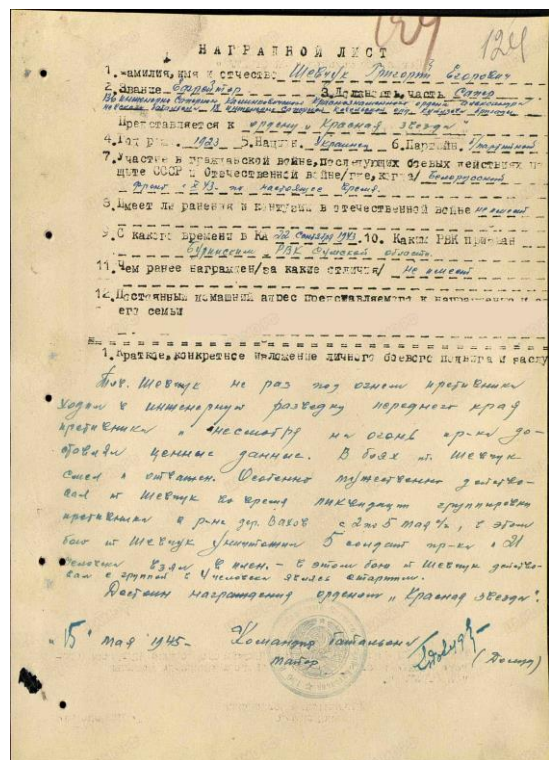 124
НАГРАДНОЙ ЛИСТ
1. Фамилия, имя и отчество Шевчук Григорий Егорович
2. Звание Ефрейтор 3. Должность, часть Сапер
Представляется к ордену "Красная звезда"
4. Год рож. 1923 5. Национ. Украинец 6. Партийн. б/партийный
7. Участие в гражданской войне, последующих боевых действиях по
щите СССР и Отечественной войне/где, когда/ Белорусский
фронт с X 43 - по настоящее время.
8. Имеет ли ранения и контузии в отечественной войне не имеет
9. С какого времени в КА 22 Сентября 1943. 10. Каким РВК призван
Буринским РВК Сумской области.
11. Чем ранее награжден/за какие отличия/ не имеет
12. Постоянный домашний адрес представляемого к награждению и
его семьи
1. Краткое, конкретное изложение личного боевого подвига и заслу
Тов. Шевчук не раз под огнем противника
ходил в инженерную разведку переднего края
противника и несмотря на огонь пр-ка до-
ставлял ценные данные. В боях т. Шевчук
смел и отважен. Особенно мужественно действо-
вал т Шевчук во время ликвидации группировки
противника в р-не дер. с 2 по 5 мая с/г, в этом
бою т Шевчук уничтожил 5 солдат пр-ка и 21
человека взял в плен. - В этом бою т Шевчук действо-
вал с группой в 4 человека являясь старшим.
Достоин награждения орденом "Красная звезда".
"15" мая 1945 - Командир батальона
майор